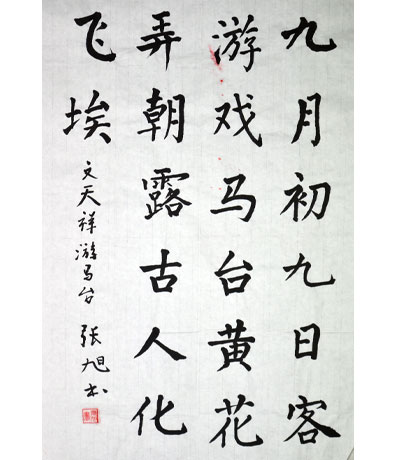 九月初九日客
游戏马台黄花
弄朝露古人化
飞埃
文天祥游马台 张旭书